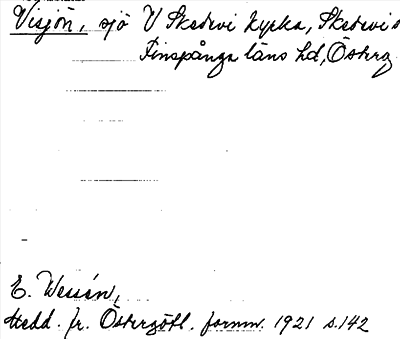 Visjön, sjö V Skedevi kyrka, Skedevi s
Finspånga läns hd, Österg
E. Wessén,
Medd. fr. Östergötl. fornm. 1921 s. 142